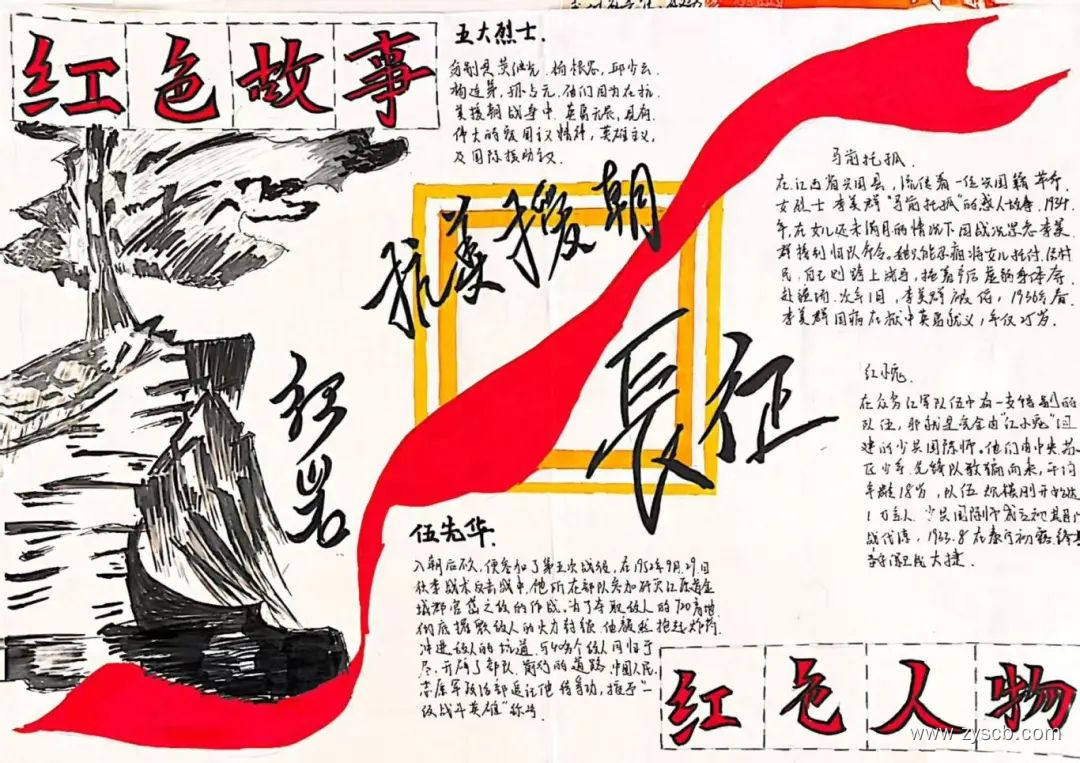 红色故事
五大烈士.
分别是黄继光 杨根思、邱少云.
孙占元.他们因为在抗
美援朝战争中.英勇无畏,具有
伟大的爱国主义精神,英雄主义,
及国际援助主义.
抗美援朝
長征
红岩
马前托孤.
在江西省兴国县,流传着一位兴国籍革命
女烈士李美群"马前托孤"的感人故事.1934
年,在女儿还未满月的情况下因战况紧急李美
群接到归队命令。她只能忍痛将女儿托付给村
民,自己则踏上战马,拖着产后虚弱的身体奔
赴疆场.次年1月,李美群被俘,1936年春.
李美群因病在狱中英勇就义,年仅25岁.
红小鬼.
在众多红军队伍中有一支特别的
队伍,那就是完全由"红小鬼"组
建的少共国际师.他们由中央苏
区少年先锋队改编而来,平均
年龄18岁,队伍规模刚开始达
1万多人.少共国际师成立初其
战 ,1933.8在泰宁初露
大捷.
伍先华.
入朝后不久,便参加了第五次战役.在1952年9月29日
秋季战术反击战中.他所在部队参加
作战.为了夺取敌人的
彻底摧毁敌人的火力封锁.他毅然抱起炸药
冲进敌人的坑道.与40多个敌人同归于
尽,开辟了部队前行的道路.中国人民
志愿军政治部追记他特等功,授予"一
级战斗英雄"称号.
红色人物
www.zyscb.com